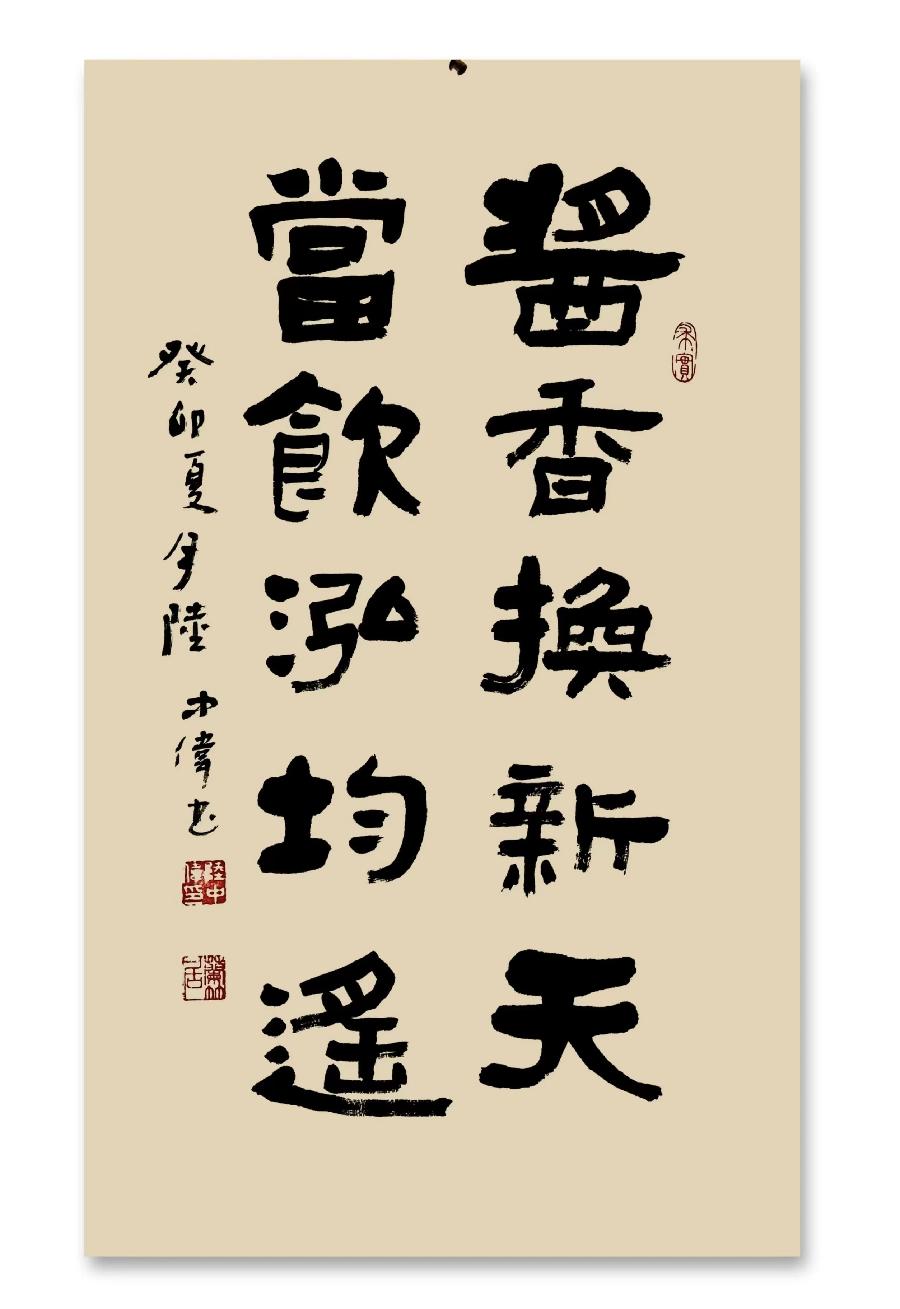 醬香換新天
當飲泓均遥
癸卯夏月陸中偉书